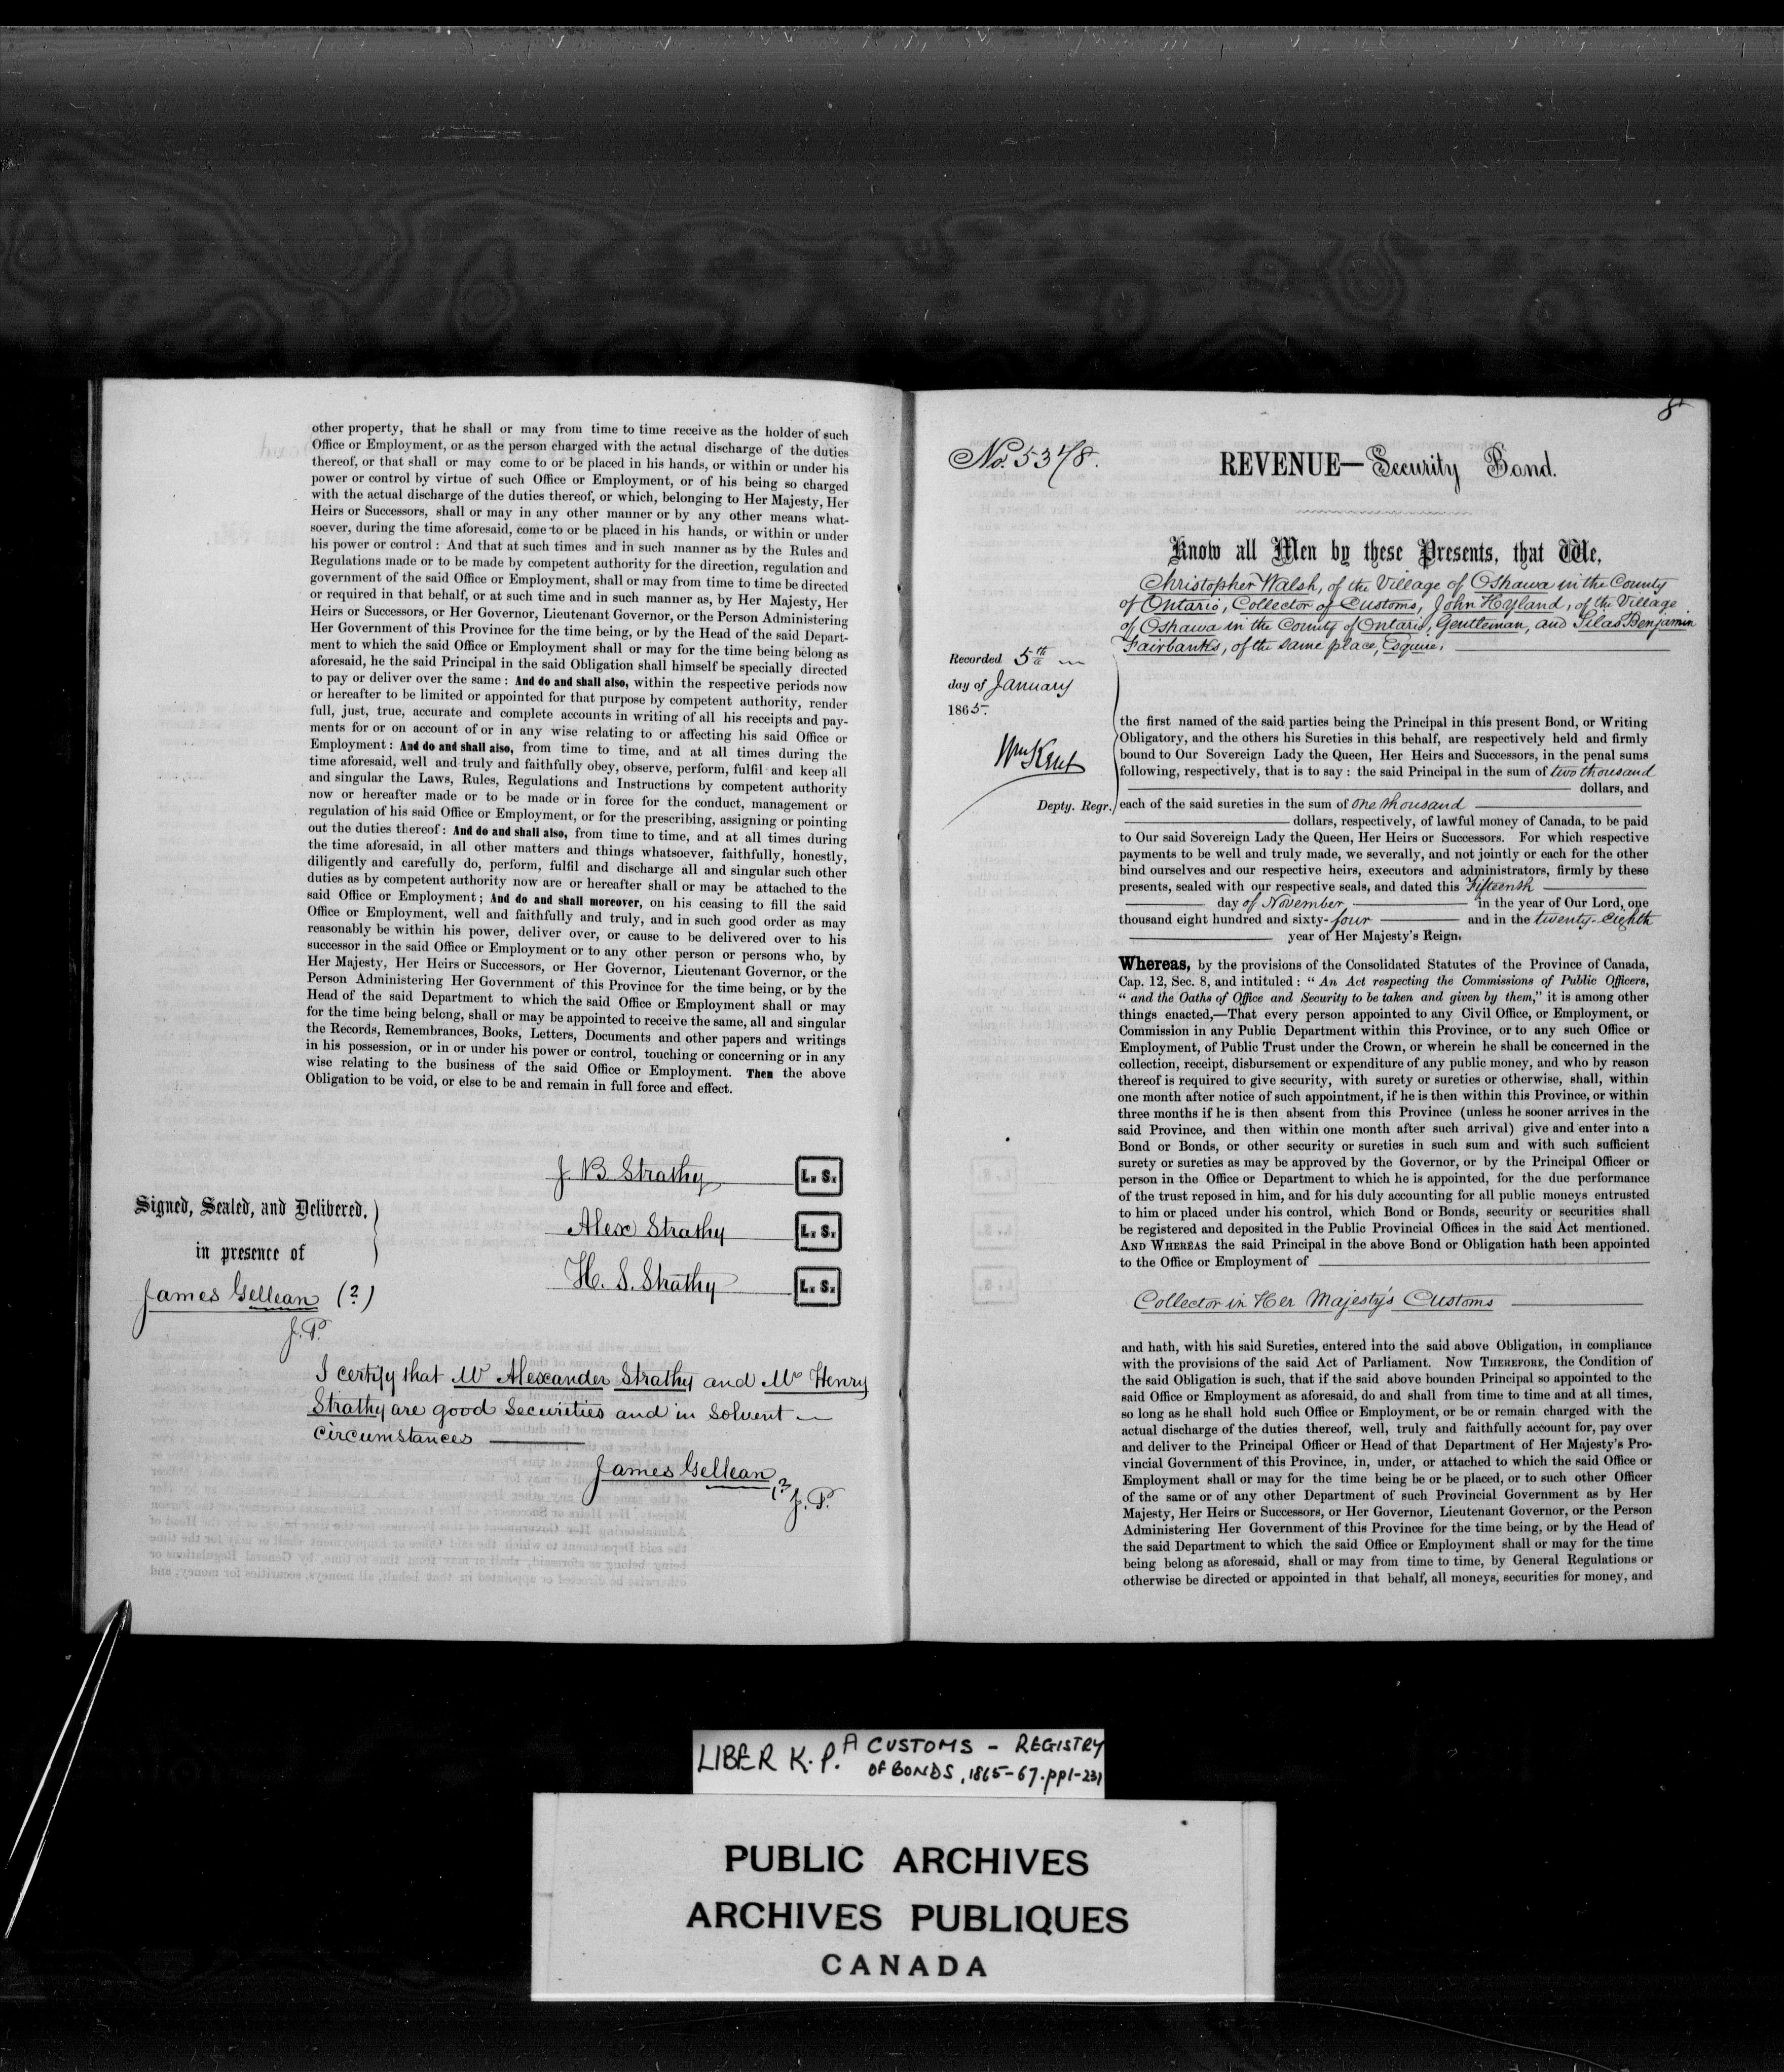 other property, that he shall or may from time to time receive as the holder of such
Office or Employment, or as the person charged with the actual discharge of the duties
thereof, or that shall or may come to or be placed in his hands, or within or under his
power or control by virtue of such Office or Employment, or of his being so charged
with the actual discharge of the duties thereof, or which, belonging to Her Majesty, Her
Heirs or Successors, shall or may in any other manner or by any other means what-
soever, during the time aforesaid, come to or be placed in his hands, or within or under
his power or control : And that at such times and in such manner as by the Rules and
Regulations made or to be made by competent authority for the direction, regulation and
government of the said Office or Employment, shall or may from time to time be directed
or required in that behalf, or at such time and in such manner as, by Her Majesty, Her
Heirs or Successors, or Her Governor, Lieutenant Governor, or the Person Administering
Her Government of this Province for the time being, or by the Head of the said Depart-
ment to which the said Office or Employment shall or may for the time being belong as
aforesaid, he the said Principal in the said Obligation shall himself be specially directed
to pay or deliver over the same : And do and shall also, within the respective periods now
or hereafter to be limited or appointed for that purpose by competent authority, render
full, just, true, accurate and complete accounts in writing of all his receipts and pay-
ments for or on account of or in any wise relating to or affecting his said Office or
Employment : And do and shall also, from time to time, and at all times during the
time aforesaid, well and truly and faithfully obey, observe, perform, fulfil and keep all
and singular the Laws, Rules, Regulations and Instructions by competent authority
now or hereafter made or to be made or in force for the conduct, management or
regulation of his said Office or Employment, or for the prescribing, assigning or pointing
out the duties thereof : And do and shall also, from time to time, and at all times during
the time aforesaid, in all other matters and things whatsoever, faithfully, honestly,
diligently and carefully do, perform, fulfil and discharge all and singular such other
duties as by competent authority now are or hereafter shall or may be attached to the
said Office or Employment ; And do and shall moreover, on his ceasing to fill the said
Office or Employment, well and faithfully and truly, and in such good order as may
reasonably be within his power, deliver over, or cause to be delivered over to his
successor in the said Office or Employment or to any other person or persons who, by
Her Majesty, Her Heirs or Successors, or Her Governor, Lieutenant Governor, or the
Person Administering Her Government of this Province for the time being, or by the
Head of the said Department to which the said Office or Employment shall or may
for the time being belong, shall or may be appointed to receive the same, all and singular
the Records, Remembrances, Books, Letters, Documents and other papers and writings
in his possession, or in or under his power or control, touching or concerning or in any
wise relating to the business of the said Office or Employment. Then the above
Obligation to be void, or else to be and remain in full force and effect.
J. B. Strathy L. S.
Signed, Sealed, and Delivered,
Alex Strathy L. S.
in presence of
H. S. Strathy L. S.
James Gellean (?)
J. P.
I certify that Mr Alexander Strathy and Mr Henry
Strathy are good securities and in solvent
circumstances
James Gellean (?)
J. P.
8
No. 5348.
REVENUE— Security Bond.
Know all Men by these Presents, that We,
Christopher Walsh, of the Village of Oshawa in the County
of Ontario, Collector of Customs, John Hyland, of the Village
of Oshawa in the County of Ontario, Gentleman, and Silas Benjamin
Fairbanks, of the same place, Esquire,
Recorded 5th
day of January
1865.
Wm Kent
Depty. Regr.
the first named of the said parties being the Principal in this present Bond, or Writing
Obligatory, and the others his Sureties in this behalf, are respectively held and firmly
bound to Our Sovereign Lady the Queen, Her Heirs and Successors, in the penal sums
following, respectively, that is to say : the said Principal in the sum of two thousand
dollars, and
each of the said sureties in the sum of one thousand
dollars, respectively, of lawful money of Canada, to be paid
to Our said Sovereign Lady the Queen, Her Heirs or Successors. For which respective
payments to be well and truly made, we severally, and not jointly or each for the other
bind ourselves and our respective heirs, executors and administrators, firmly by these
presents, sealed with our respective seals, and dated this Fifteenth
day of November in the year of Our Lord, one
thousand eight hundred and sixty-four and in the twenty-eighth
year of Her Majesty's Reign.
Whereas, by the provisions of the Consolidated Statutes of the Province of Canada,
Cap. 12, Sec. 8, and intituled : " An Act respecting the Commissions of Public Officers,
" and the Oaths of Office and Security to be taken and given by them," it is among other
things enacted,—That every person appointed to any Civil Office, or Employment, or
Commission in any Public Department within this Province, or to any such Office or
Employment, of Public Trust under the Crown, or wherein he shall be concerned in the
collection, receipt, disbursement or expenditure of any public money, and who by reason
thereof is required to give security, with surety or sureties or otherwise, shall, within
one month after notice of such appointment, if he is then within this Province, or within
three months if he is then absent from this Province (unless he sooner arrives in the
said Province, and then within one month after such arrival) give and enter into a
Bond or Bonds, or other security or sureties in such sum and with such sufficient
surety or sureties as may be approved by the Governor, or by the Principal Officer or
person in the Office or Department to which he is appointed, for the due performance
of the trust reposed in him, and for his duly accounting for all public moneys entrusted
to him or placed under his control, which Bond or Bonds, security or securities shall
be registered and deposited in the Public Provincial Offices in the said Act mentioned.
AND WHEREAS the said Principal in the above Bond or Obligation hath been appointed
to the Office or Employment of
Collector in Her Majesty's Customs
and hath, with his said Sureties, entered into the said above Obligation, in compliance
with the provisions of the said Act of Parliament. NOW THEREFORE, the Condition of
the said Obligation is such, that if the said above bounden Principal so appointed to the
said Office or Employment as aforesaid, do and shall from time to time and at all times,
so long as he shall hold such Office or Employment, or be or remain charged with the
actual discharge of the duties thereof, well, truly and faithfully account for, pay over
and deliver to the Principal Officer or Head of that Department of Her Majesty's Pro-
vincial Government of this Province, in, under, or attached to which the said Office or
Employment shall or may for the time being be or be placed, or to such other Officer
of the same or of any other Department of such Provincial Government as by Her
Majesty, Her Heirs or Successors, or Her Governor, Lieutenant Governor, or the Person
Administering Her Government of this Province for the time being, or by the Head of
the said Department to which the said Office or Employment shall or may for the time
being belong as aforesaid, shall or may from time to time, by General Regulations or
otherwise be directed or appointed in that behalf, all moneys, securities for money, and
LIBER K.P. A CUSTOMS - REGISTRY
OF BONDS, 1865-67. pp1-231
PUBLIC ARCHIVES
ARCHIVES PUBLIQUES
CANADA